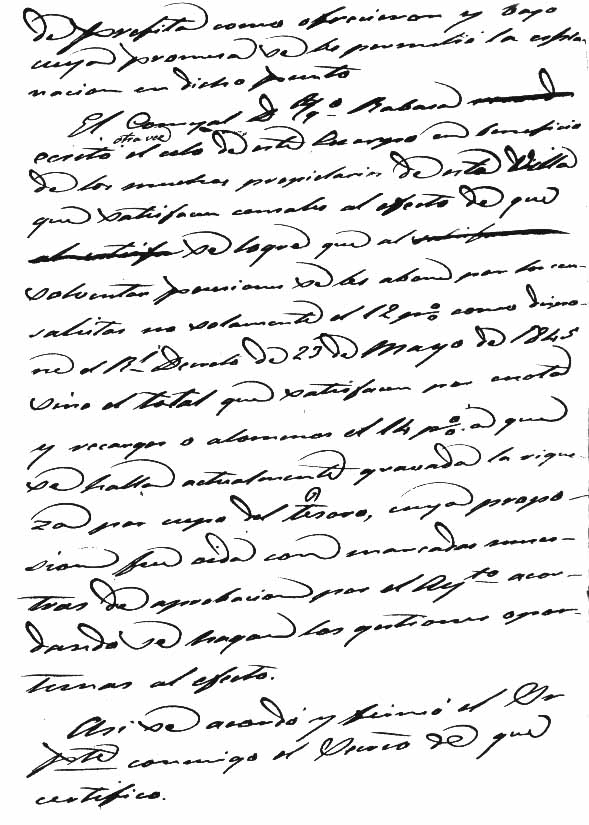 de profita como ofrecieron y bajo
cuya promesa se les permitió la esplanacion
nacion en dicho punto
El Concejal D. Rabasa
otra vez
ecsitó el celo de este Cuerpo en beneficio
de los muchos propietarios de esta Villa
que satisfacen censales al efecto de que
se logre que al
solventar pensiones se les abone por los cen-
salistas no solamente el 12 p% como dispo-
ne el Rl. Decreto de 23 de Mayo de 1845
sino el total que satisfacen por cuota
y recargos o alomenos el 14 p% á que
se halla actualmente gravada la rique-
za por cupo del tesoro, cuya propo-
sicion fue oida con marcadas mues-
tras de aprobacion por el Aytº acor-
dando se hagan las gestiones opor-
tunas al efecto.
Asi se acordó y firmó el Sr
Pte conmigo el Secrio de que
certifico.